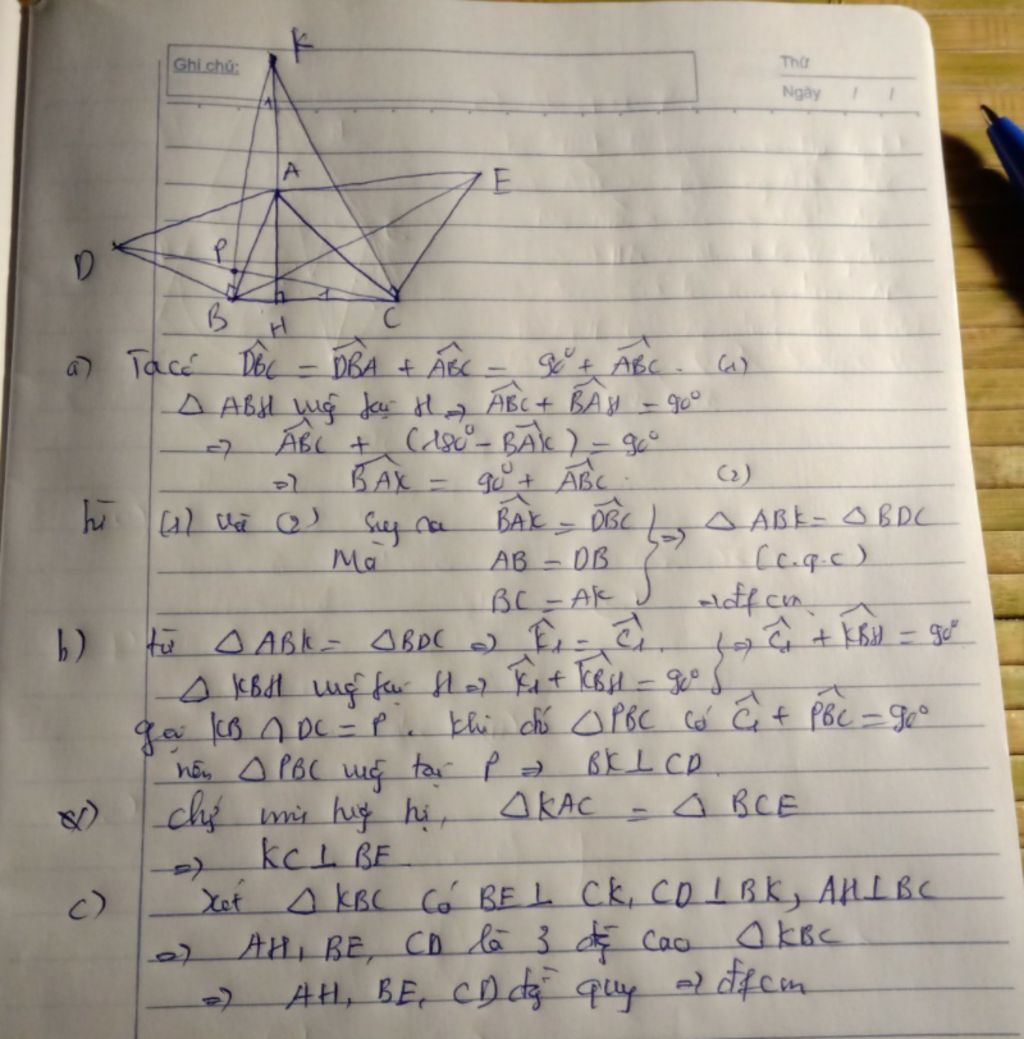 Ghi chú:
Thứ
Ngày / /
K
1
A
E
D
P
B
H
1
C
a) Ta có DBC^ = DBA^ + ABC^ = 90° + ABC^. (1)
△ ABH vg tại H => ABC^ + BAH^ = 90°
=> ABC^ + (180° - BAK^) = 90°
=> BAK^ = 90° + ABC^. (2)
từ (1) và (2) suy ra BAK^ = DBC^ } => △ ABK = △ BDC
Mà AB = DB (c.g.c)
BC = AK => đpcm.
b) từ △ ABK = △ BDC => K1^ = C1^. } => C1^ + KBH^ = 90°
△ KBH vg tại H => K1^ + KBH^ = 90°
gọi KB ∩ DC = P. Khi đó △ PBC có C1^ + PBC^ = 90°
nên △ PBC vg tại P => BK ⊥ CD.
c) chứg mih tươg tự, △ KAC = △ BCE
=> KC ⊥ BE
c) Xét △ KBC có BE ⊥ CK, CD ⊥ BK, AH ⊥ BC
=> AH, BE, CD là 3 đg cao △ KBC
=> AH, BE, CD đg quy => đpcm